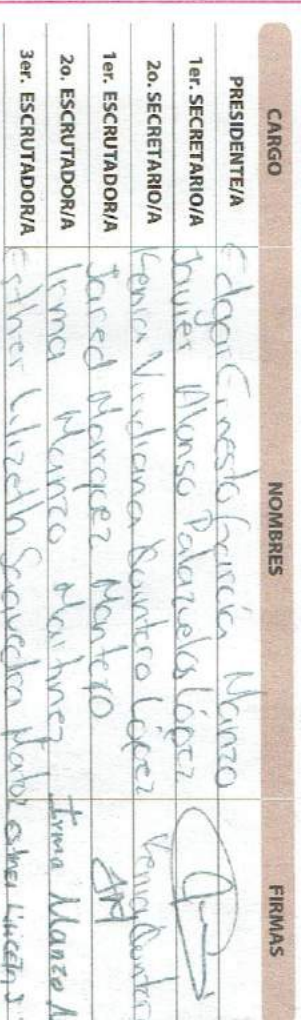 CARGO NOMBRES FIRMAS
PRESIDENTE/A Edgar Ernesto García Manzo
1er. SECRETARIO/A Javier Alonso Palazuelos López
2o. SECRETARIO/A Kenia Viridiana Quintero López Kenia Quintero
1er. ESCRUTADOR/A Jared Marquez Montero
2o. ESCRUTADOR/A Irma Manzo Martinez Irma Manzo M
3er. ESCRUTADOR/A Esther Lilizeth Saavedra